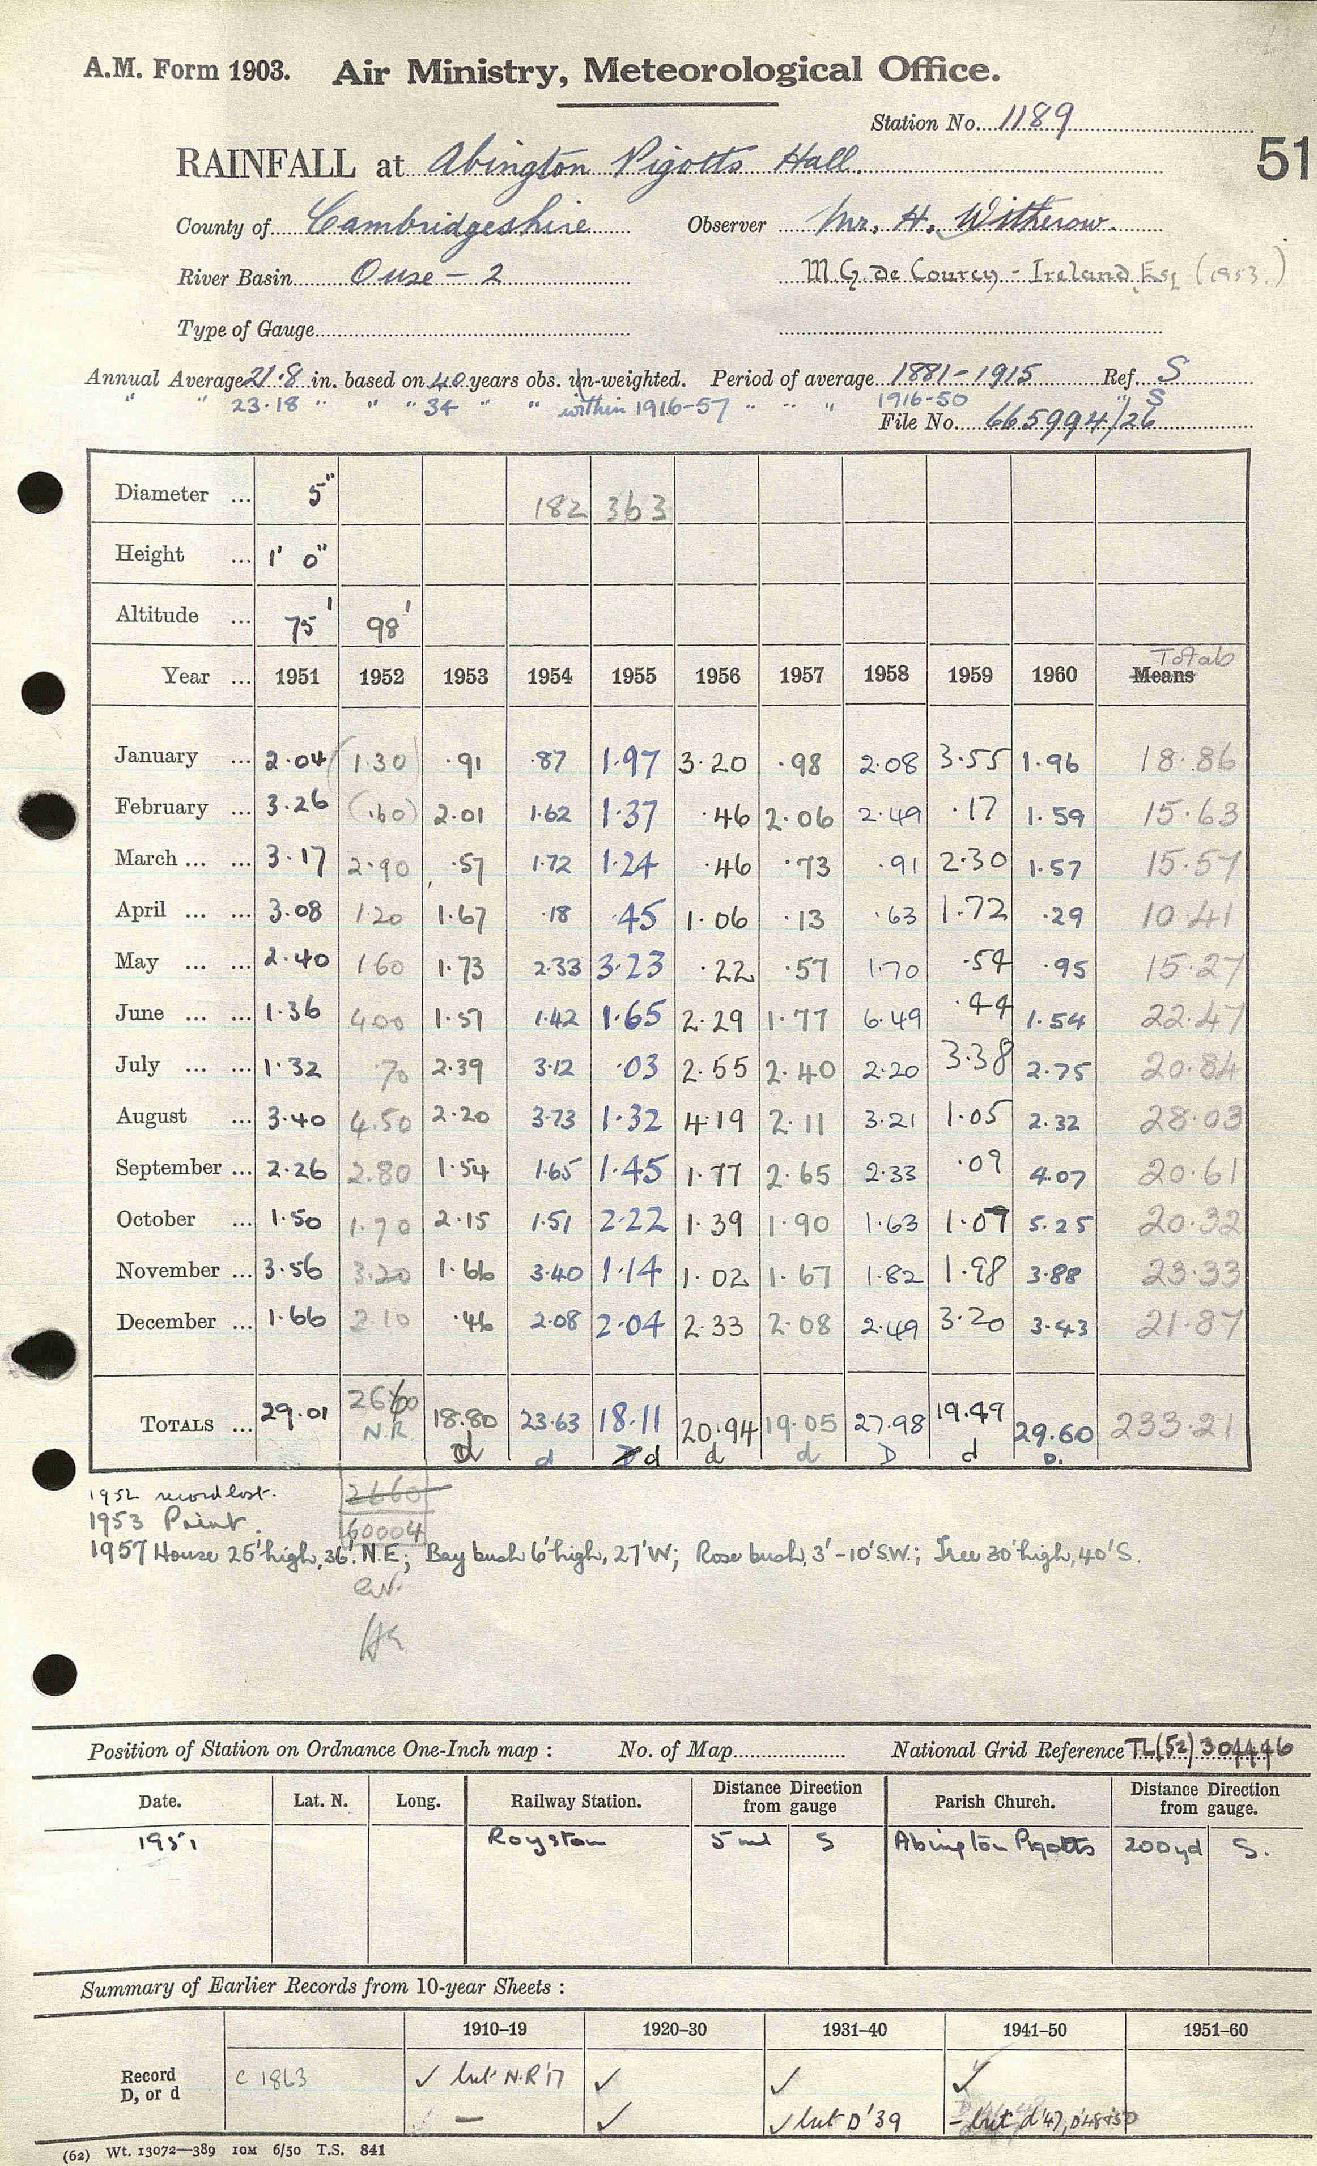 A.M. Form 1903. Air Ministry, Meteorological Office.
Station No. 1189
51
RAINFALL at Abington Pigotts Hall.
County of Cambridgeshire Observer Mr. H. Witherow.
River Basin Ouse - 2 M G de Courcy - Ireland, Esq (1953.)
Type of Gauge
Annual Average 21.8 in. based on 40 years obs. un-weighted. Period of average 1881-1915 Ref. S
" " 23.18 " " " 34 " " within 1916-57 " " " 1916-50 " S
File No. 665994/26
Diameter ... 5" 182 363
Height ... 1' 0"
Altitude ... 75' 98'
Totals
Year ... 1951 1952 1953 1954 1955 1956 1957 1958 1959 1960 Means
January ... 2.04 (1.30) .91 .87 1.97 3.20 .98 2.08 3.55 1.96 18.86
February ... 3.26 (.60) 2.01 1.62 1.37 .46 2.06 2.49 .17 1.59 15.63
March ... ... 3.17 2.90 .57 1.72 1.24 .46 .73 .91 2.30 1.57 15.57
April ... ... 3.08 1.20 1.67 .18 .45 1.06 .13 .63 1.72 .29 10.41
May ... ... 2.40 1.60 1.73 2.33 3.23 .22 .57 1.70 .54 .95 15.27
June ... ... 1.36 4.00 1.51 1.42 1.65 2.29 1.77 6.49 .44 1.54 22.47
July ... ... 1.32 .70 2.39 3.12 .03 2.55 2.40 2.20 3.38 2.75 20.84
August ... 3.40 4.50 2.20 3.73 1.32 4.19 2.11 3.21 1.05 2.32 28.03
September ... 2.26 2.80 1.54 1.65 1.45 1.77 2.65 2.33 .09 4.07 20.61
October ... 1.50 1.70 2.15 1.51 2.22 1.39 1.90 1.63 1.07 5.25 20.32
November ... 3.56 3.20 1.66 3.40 1.14 1.02 1.67 1.82 1.98 3.88 23.33
December ... 1.66 2.10 .46 2.08 2.04 2.33 2.08 2.49 3.20 3.43 21.87
TOTALS ... 29.01 2660 18.80 23.63 18.11 20.94 19.05 27.98 19.49 29.60 233.21
N.R. d d d d d D d D.
1952 record lost. 2660
1953 Paint. 60004
1957 House 25' high, 36' N.E; Bay bush 6' high, 27' W; Rose bush, 3' - 10' S.W.; Tree 30' high, 40' S.
Position of Station on Ordnance One-Inch map : No. of Map National Grid Reference TL(52) 304446
Date. Lat. N. Long. Railway Station. Distance Direction from gauge Parish Church. Distance Direction from gauge.
1951 Royston 5 ml S Abington Pigotts 200yd S.
Summary of Earlier Records from 10-year Sheets :
1910–19 1920–30 1931–40 1941–50 1951–60
Record c 1863 ✓ but N.R '17 ✓ ✓ ✓
D, or d — ✓ ✓ but D '39 - but d '47, D'48+'50
(62) Wt. 13072—389 10M 6/50 T.S. 841